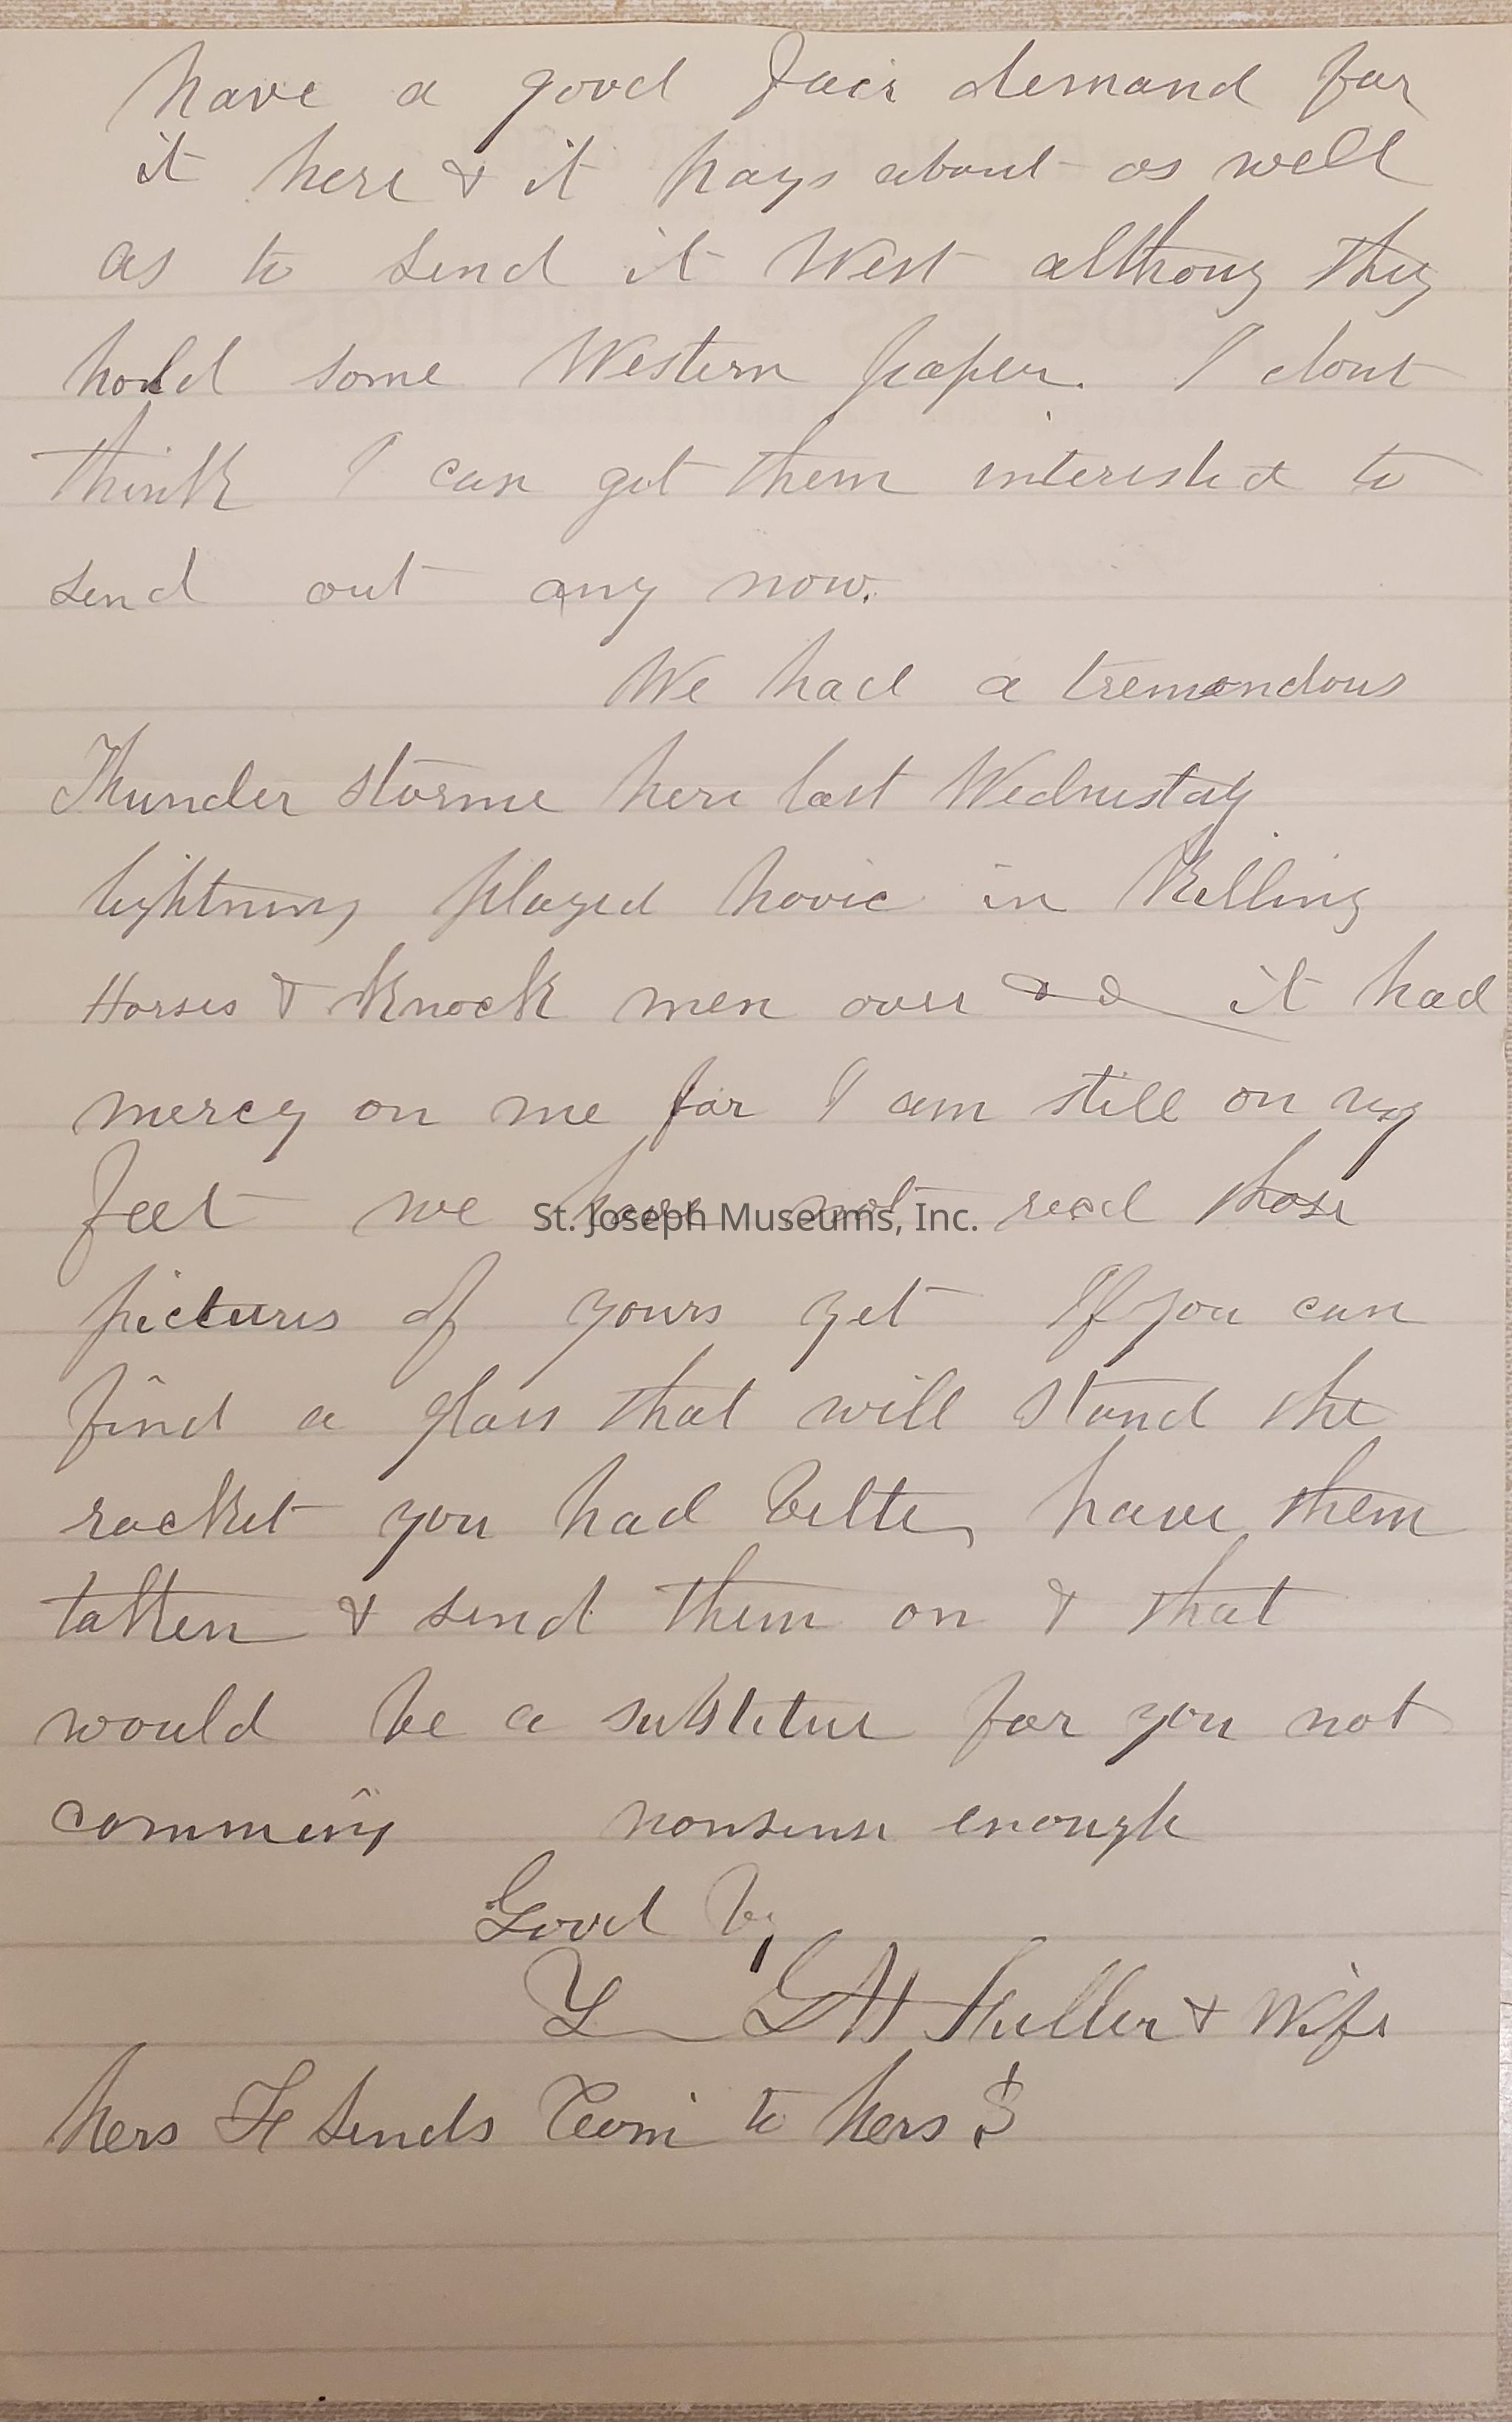 have a good fair demand for
it here & it pays about as well
as to send it West althoug they
hold some Western paper. I dont
think I can get them interested to
send out any now.
We had a tremendous
Thunder storme here last Wednestay
lightning played havic in Killing
Horses & Knock men over & & it had
mercy on me for I am still on my
feet we have not recd those
pictures of yours yet If you can
find a glass that will stand the
racket you had better have them
taken & send them on & that
would be a substitue for you not
comming nonsense enough
Good by
G H Fuller & Wife
hers sends to hers
St. Joseph Museums, Inc.